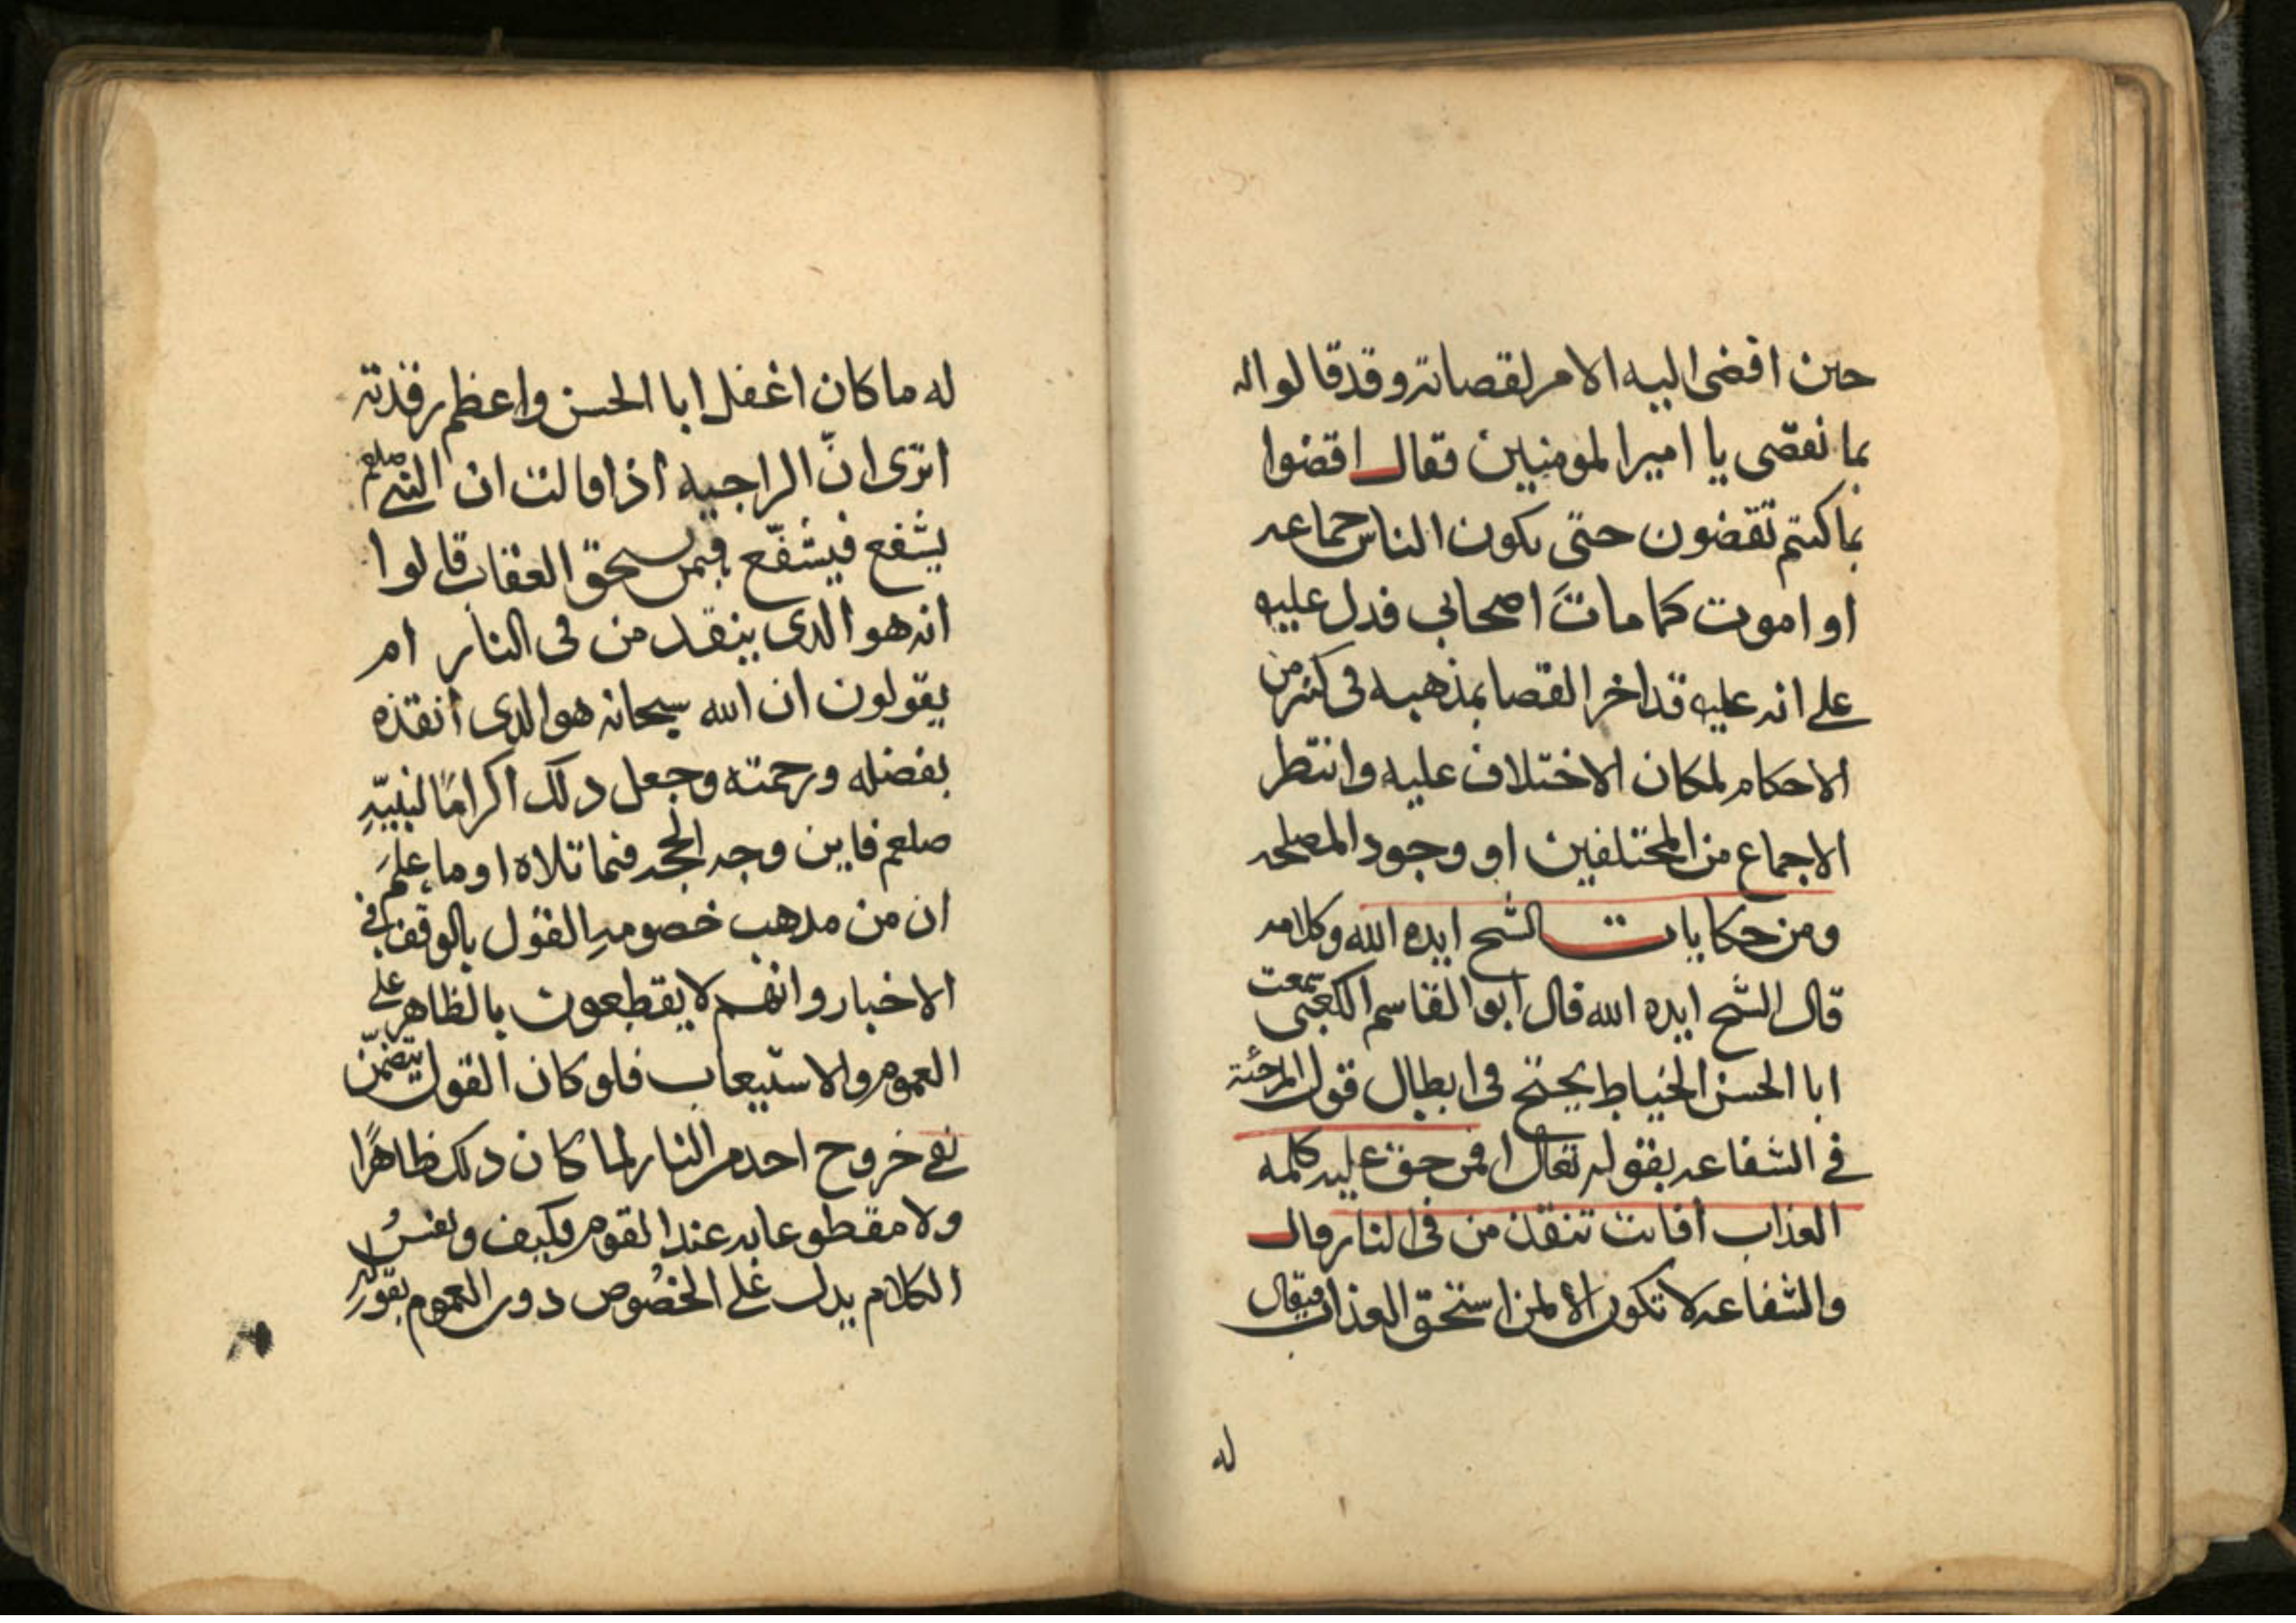 حين افضى اليه الامر لقصاته وقد قالوا له
بما نقضى يا امير المومنين فقال اقضوا
بما كنتم تقضون حتى يكون الناس جماعه
او اموت كما مات اصحابي فدل عليه
على انه عليه قد اخر القضا بمذهبه في كثر من
الاحكام لمكان الاختلاف عليه وانتظر
الاجماع من المختلفين او وجود المصلحه
ومن حكايات الشيخ ايده الله وكلامه
قال الشيخ ايده الله قال ابو القاسم الكعبي سمعت
ابا الحسن الخياط يحتج في ابطال قول المرجئة
في الشفاعه بقوله تعالى افمن حق عليه كلمه
العذاب افانت تنقذ من في النار وقال
والشفاعه لا تكون الا لمن استحق العذاب فيقال
له
له ما كان اغفل ابا الحسن واعظم رقدته
اترى ان الراجيه اذا قالت ان النبي صلعم
يشفع فيشفّع فيمن يسحق العقاب قالوا
انه هو الذى ينقد من في النار ام
يقولون ان الله سبحانه هو الذى انقذه
بفضله ورحمته وجعل دلك اكرامًا لنبيّهِ
صلعم فاين وجه الحجه فيما تلاه او ما علمَ
ان من مدهب خصومه القول بالوقف في
الاخبار وانهم لا يقطعون بالظاهر على
العموم والاستيعاب فلو كان القول يتضمّن
نفي خروج احد من النار لما كان دلك ظاهرًا
ولا مقطوعا به عند القوم وكيف ونفسُ
الكلام يدل على الخصُوص دون العموم بقوله